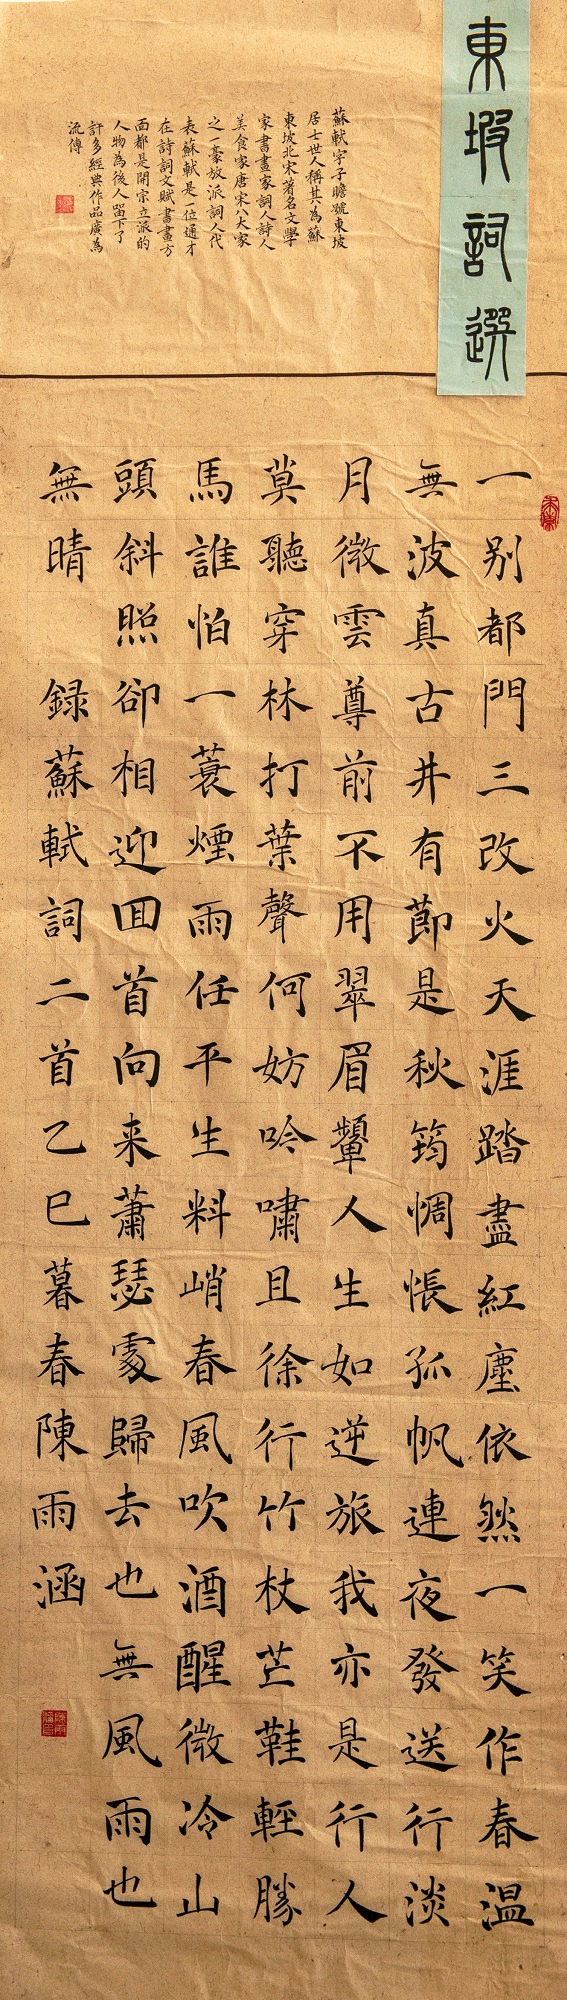 東坡詞選
蘇軾字子瞻號東坡
居士世人稱其為蘇
東坡北宋著名文學
家書畫家詞人詩人
美食家唐宋八大家
之一豪放派詞人代
表蘇軾是一位通才
在詩詞文賦書畫方
面都是開宗立派的
人物為後人留下了
許多經典作品廣為
流傳
一别都門三改火天涯踏盡紅塵依然一笑作春温
無波真古井有莭是秋筠惆悵孤帆連夜發送行淡
月微雲尊前不用翠眉顰人生如逆旅我亦是行人
莫聽穿林打葉聲何妨吟嘯且徐行竹杖芒鞋輕勝
馬誰怕一蓑煙雨任平生料峭春風吹酒醒微冷山
頭斜照卻相迎回首向来蕭瑟處歸去也無風雨也
無晴 録蘇軾詞二首乙巳暮春陳雨涵